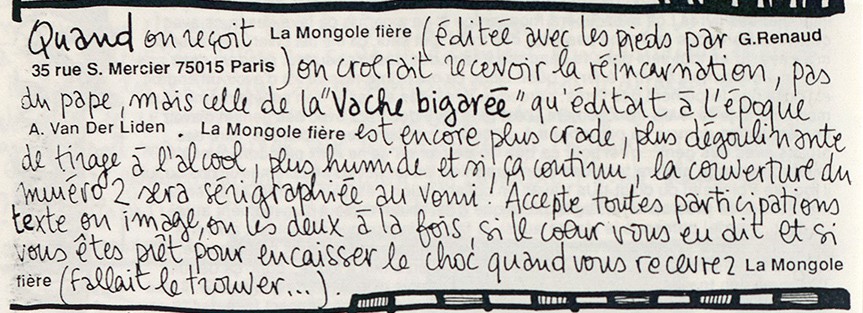 Quand on reçoit La Mongole fière (éditée avec les pieds par G.Renaud
35 rue S. Mercier 75015 Paris) on croirait recevoir la réincarnation, pas
du pape, mais celle de la "Vache bigarée" qu'éditait à l'époque
A. Van Der Liden. La Mongole fière est encore plus crade, plus dégoulinante
de tirage à l'alcool, plus humide et si, ça continu, la couverture du
numéro 2 sera sérigraphiée au vomi! Accepte toutes participations
texte ou image, ou les deux à la fois, si le cœur vous en dit et si
vous êtes prêt pour encaisser le choc quand vous recevrez La Mongole
fière (fallait le trouver...).